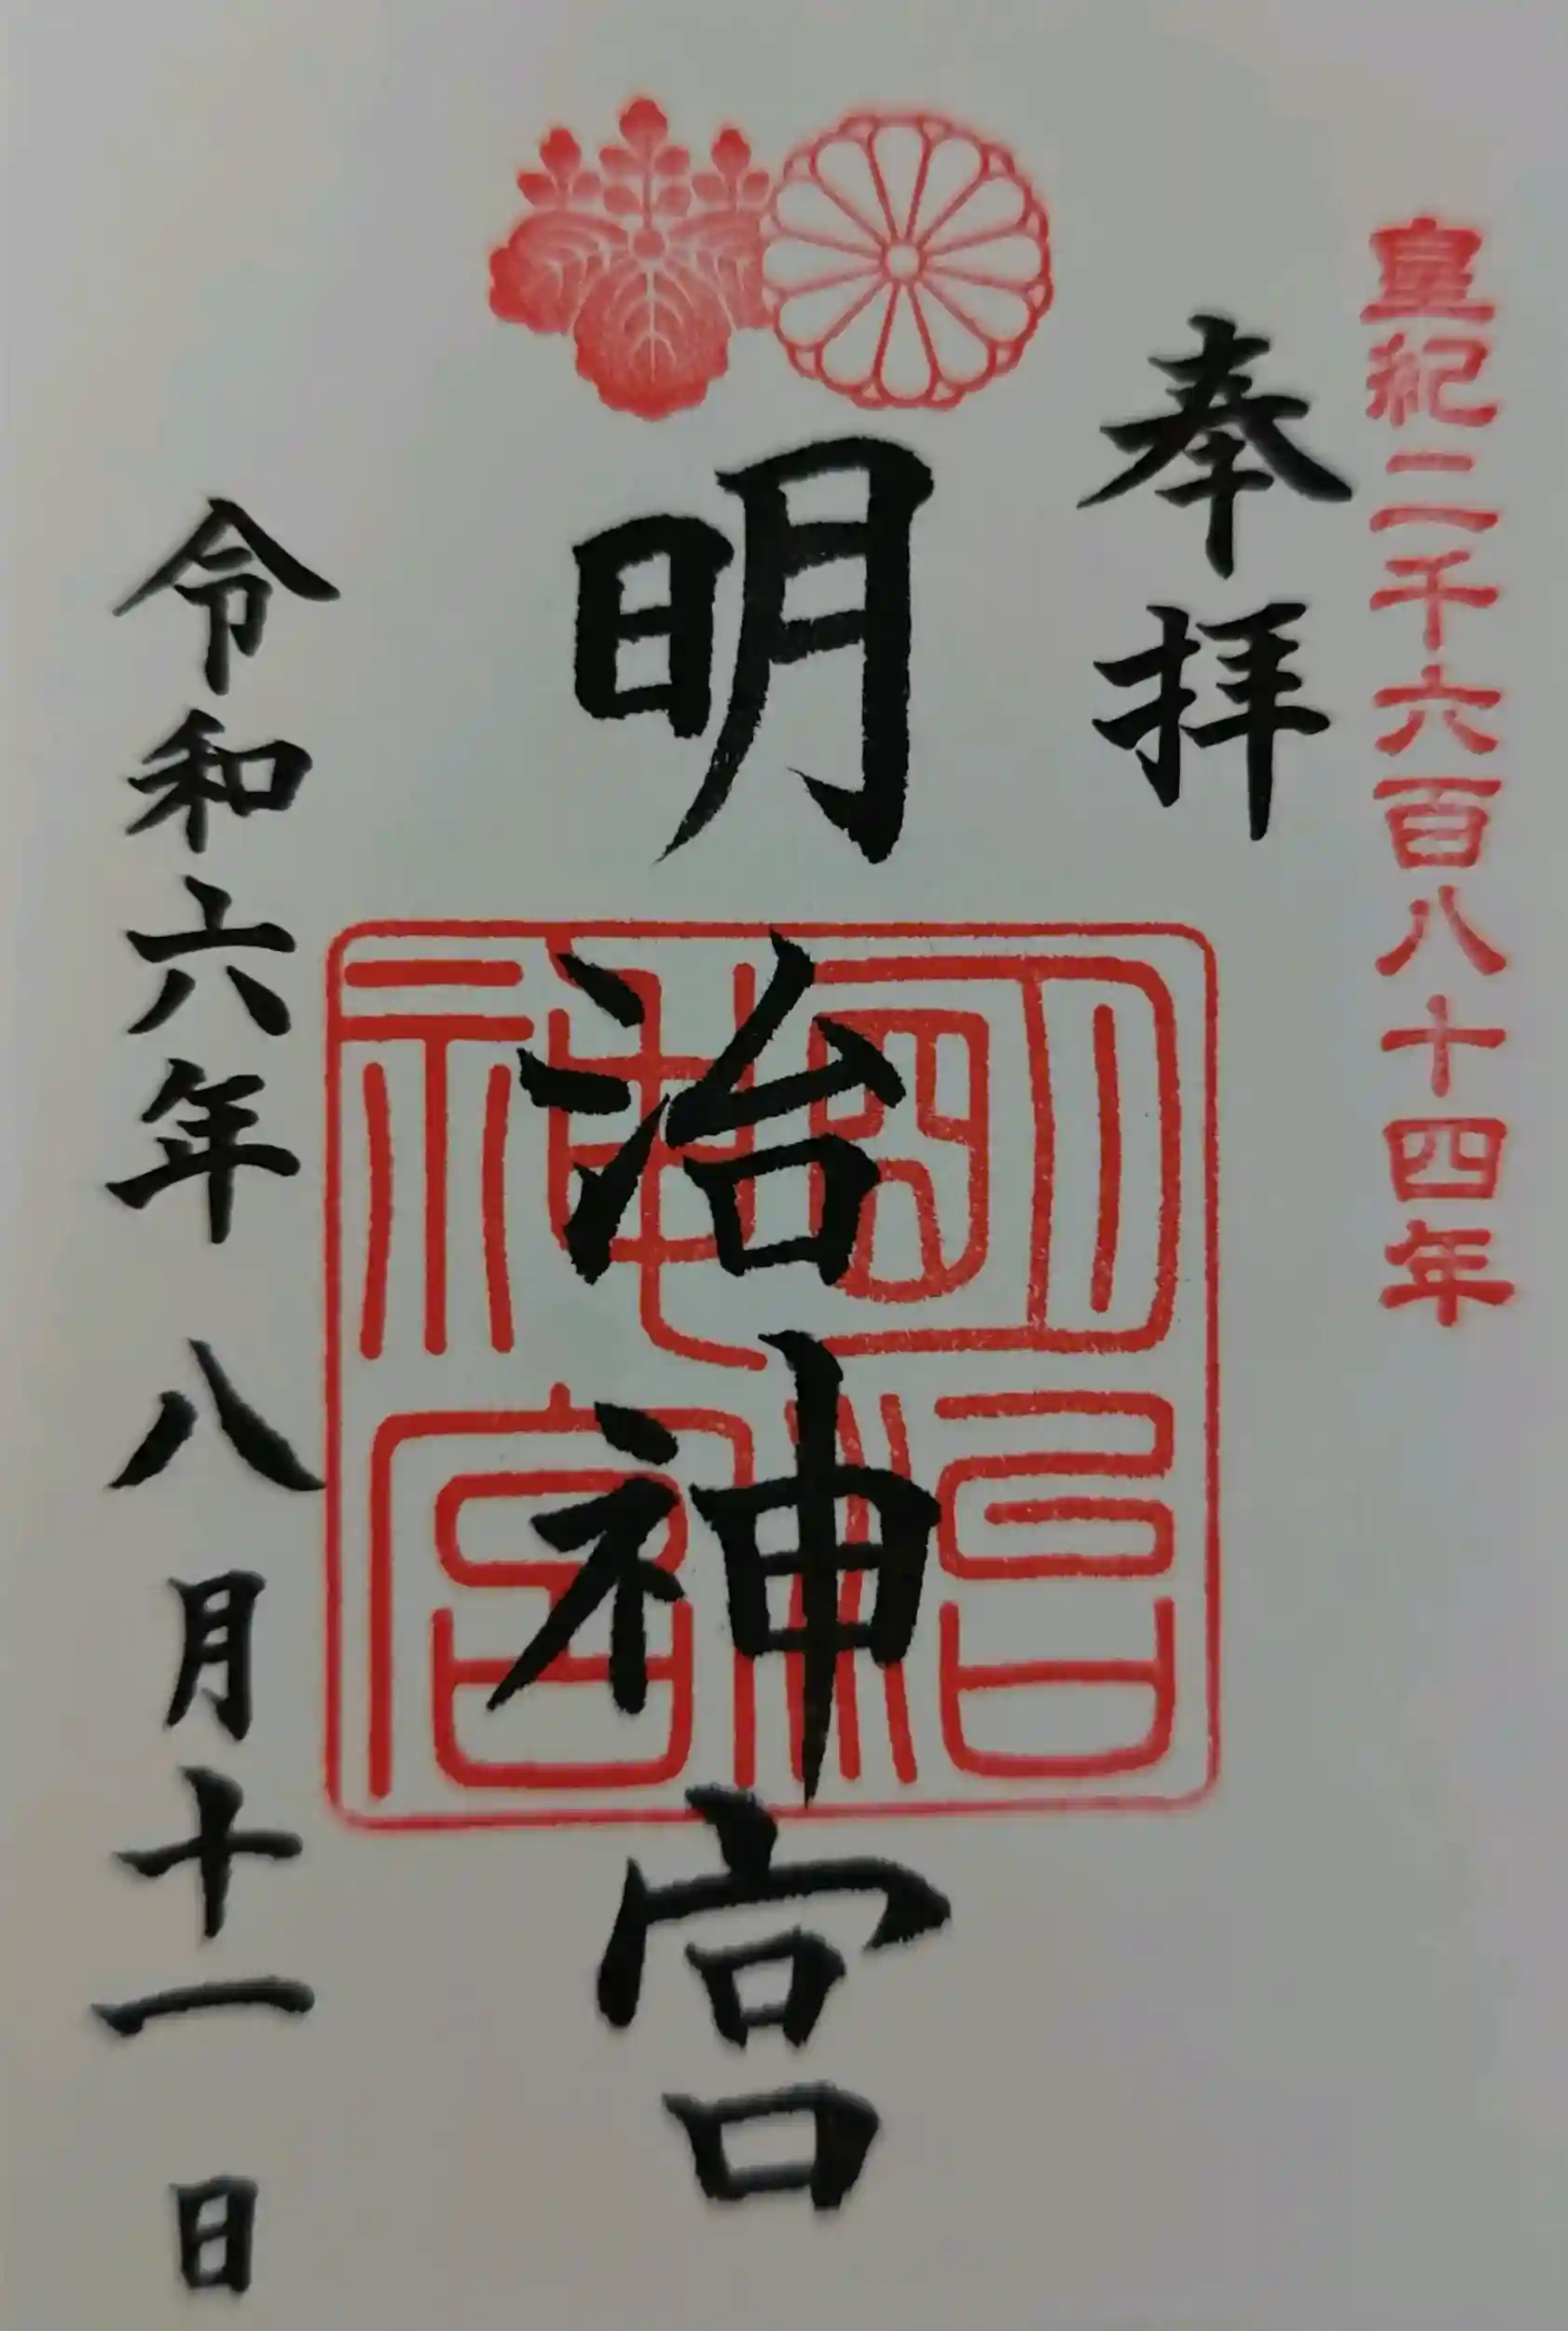 皇紀二千六百八十四年
奉拝
明治神宮
明治神宮
令和六年八月十一日